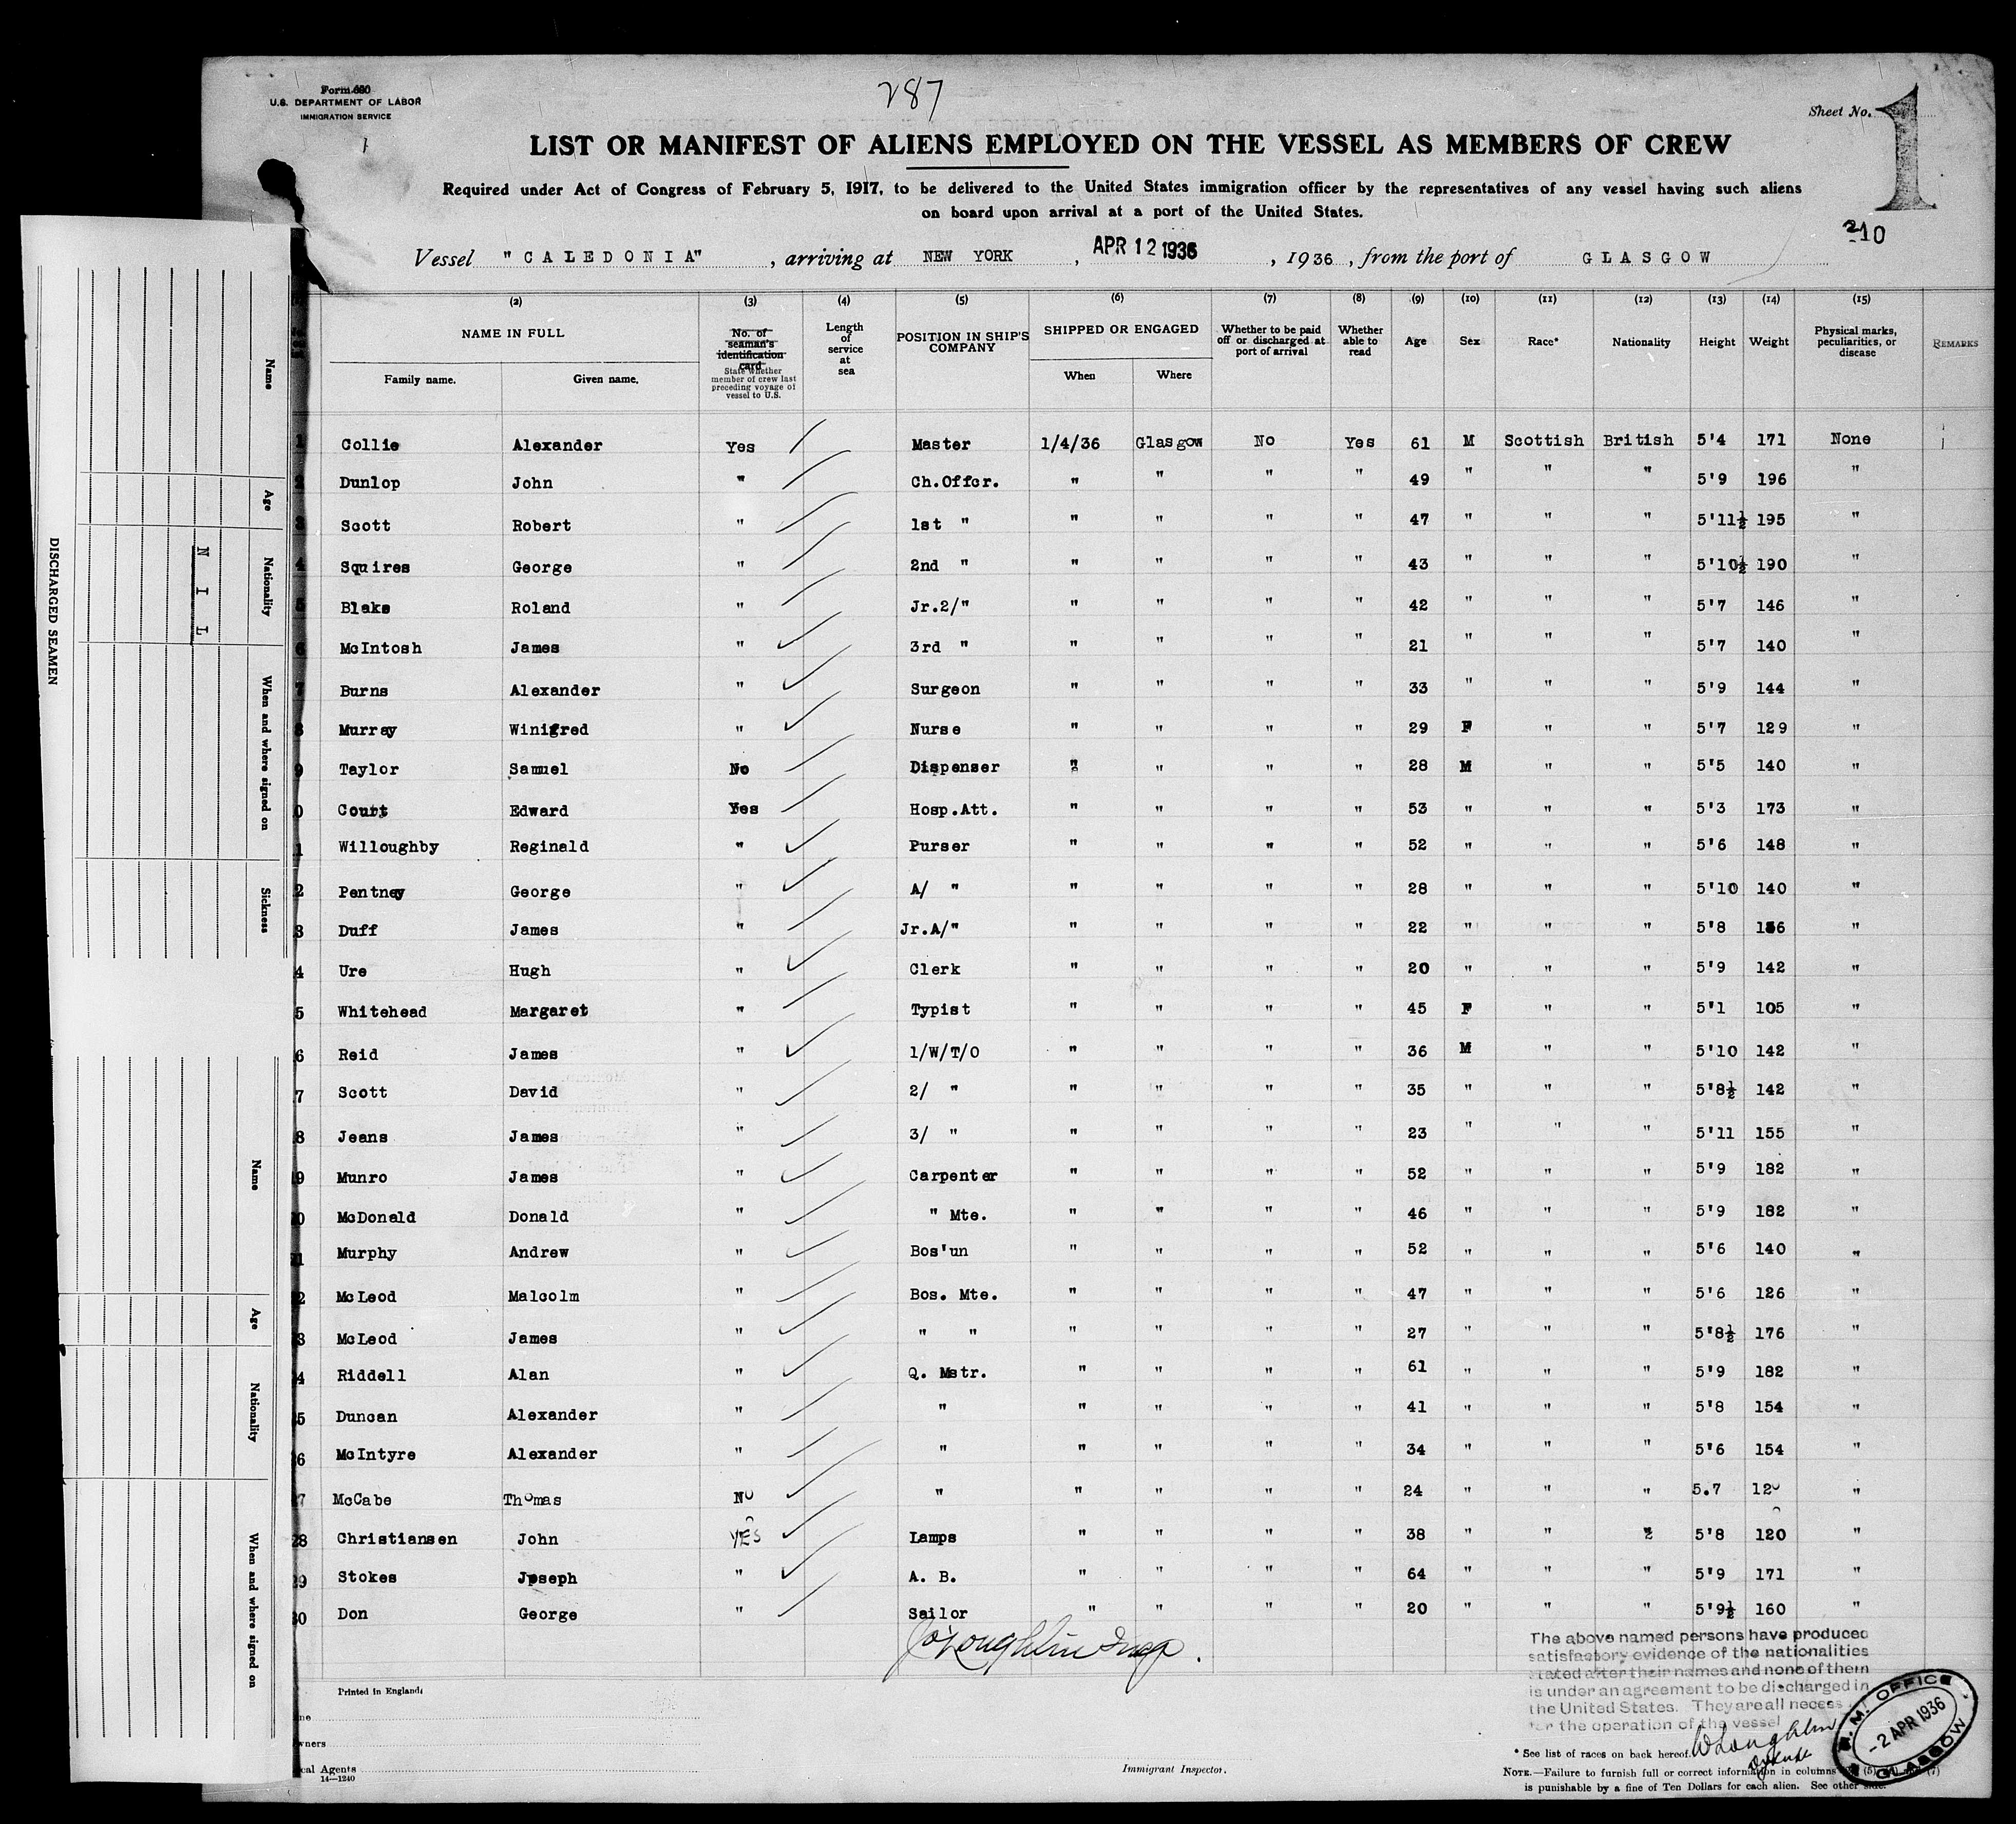 287
Form 680
U.S. DEPARTMENT OF LABOR
IMMIGRATION SERVICE
Sheet No. 1
LIST OR MANIFEST OF ALIENS EMPLOYED ON THE VESSEL AS MEMBERS OF CREW
Required under Act of Congress of February 5, 1917, to be delivered to the United States immigration officer by the representatives of any vessel having such aliens
on board upon arrival at a port of the United States.
210
Vessel "CALEDONIA", arriving at NEW YORK, APR 12 1936, 1936, from the port of GLASGOW
(2) (3) (4) (5) (6) (7) (8) (9) (10) (11) (12) (13) (14) (15)
NAME IN FULL
Family name. Given name.
No. of seaman's identification card
State whether member of crew last preceding voyage of vessel to U.S.
Length of service at sea
POSITION IN SHIP'S COMPANY
SHIPPED OR ENGAGED
When Where
Whether to be paid off or discharged at port of arrival
Whether able to read
Age
Sex
Race*
Nationality
Height
Weight
Physical marks, peculiarities, or disease
REMARKS
1 Collie Alexander Yes Master 1/4/36 Glasgow No Yes 61 M Scottish British 5'4 171 None
2 Dunlop John " Ch.Offcr. " " " " 49 " " " 5'9 196 "
3 Scott Robert " 1st " " " " " 47 " " " 5'11½ 195 "
4 Squires George " 2nd " " " " " 43 " " " 5'10½ 190 "
5 Blake Roland " Jr.2/" " " " " 42 " " " 5'7 146 "
6 McIntosh James " 3rd " " " " " 21 " " " 5'7 140 "
7 Burns Alexander " Surgeon " " " " 33 " " " 5'9 144 "
8 Murray Winifred " Nurse " " " " 29 F " " 5'7 129 "
9 Taylor Samuel No Dispenser " " " " 28 M " " 5'5 140 "
0 Court Edward Yes Hosp.Att. " " " " 53 " " " 5'3 173 "
1 Willoughby Reginald " Purser " " " " 52 " " " 5'6 148 "
2 Pentney George " A/ " " " " " 28 " " " 5'10 140 "
3 Duff James " Jr.A/" " " " " 22 " " " 5'8 "
4 Ure Hugh " Clerk " " " " 20 " " " 5'9 142 "
5 Whitehead Margaret " Typist " " " " 45 F " " 5'1 105 "
6 Reid James " 1/W/T/O " " " " 36 M " " 5'10 142 "
7 Scott David " 2/ " " " " " 35 " " " 5'8½ 142 "
8 Jeans James " 3/ " " " " " 23 " " " 5'11 155 "
9 Munro James " Carpenter " " " " 52 " " " 5'9 182 "
0 McDonald Donald " " Mte. " " " " 46 " " " 5'9 182 "
1 Murphy Andrew " Bos'un " " " " 52 " " " 5'6 140 "
2 McLeod Malcolm " Bos. Mte. " " " " 47 " " " 5'6 126 "
3 McLeod James " " " " " " " 27 " " " 5'8½ 176 "
4 Riddell Alan " Q. Mstr. " " " " 61 " " " 5'9 182 "
5 Duncan Alexander " " " " " " 41 " " " 5'8 154 "
6 McIntyre Alexander " " " " " " 34 " " " 5'6 154 "
7 McCabe Thomas No " " " " " 24 " " " 5.7 120 "
28 Christiansen John YES Lamps " " " " 38 " " " 5'8 120 "
29 Stokes Jpseph " A. B. " " " " 64 " " " 5'9 171 "
30 Don George " Sailor " " " " 20 " " " 5'9½ 160 "
The above named persons have produced
satisfactory evidence of the nationalities
stated after their names and none of them
is under an agreement to be discharged in
the United States. They are all neces
for the operation of the vessel
Printed in England
owners
cal Agents
14—1240
Immigrant Inspector.
* See list of races on back hereof.
NOTE.—Failure to furnish full or correct information in columns (5) (7)
is punishable by a fine of Ten Dollars for each alien. See other side.
M. OFFICE
-2 APR 1936
GLASGOW
DISCHARGED SEAMEN
Name
Age
Nationality
When and where signed on
Sickness
NIL
Name
Age
Nationality
When and where signed on